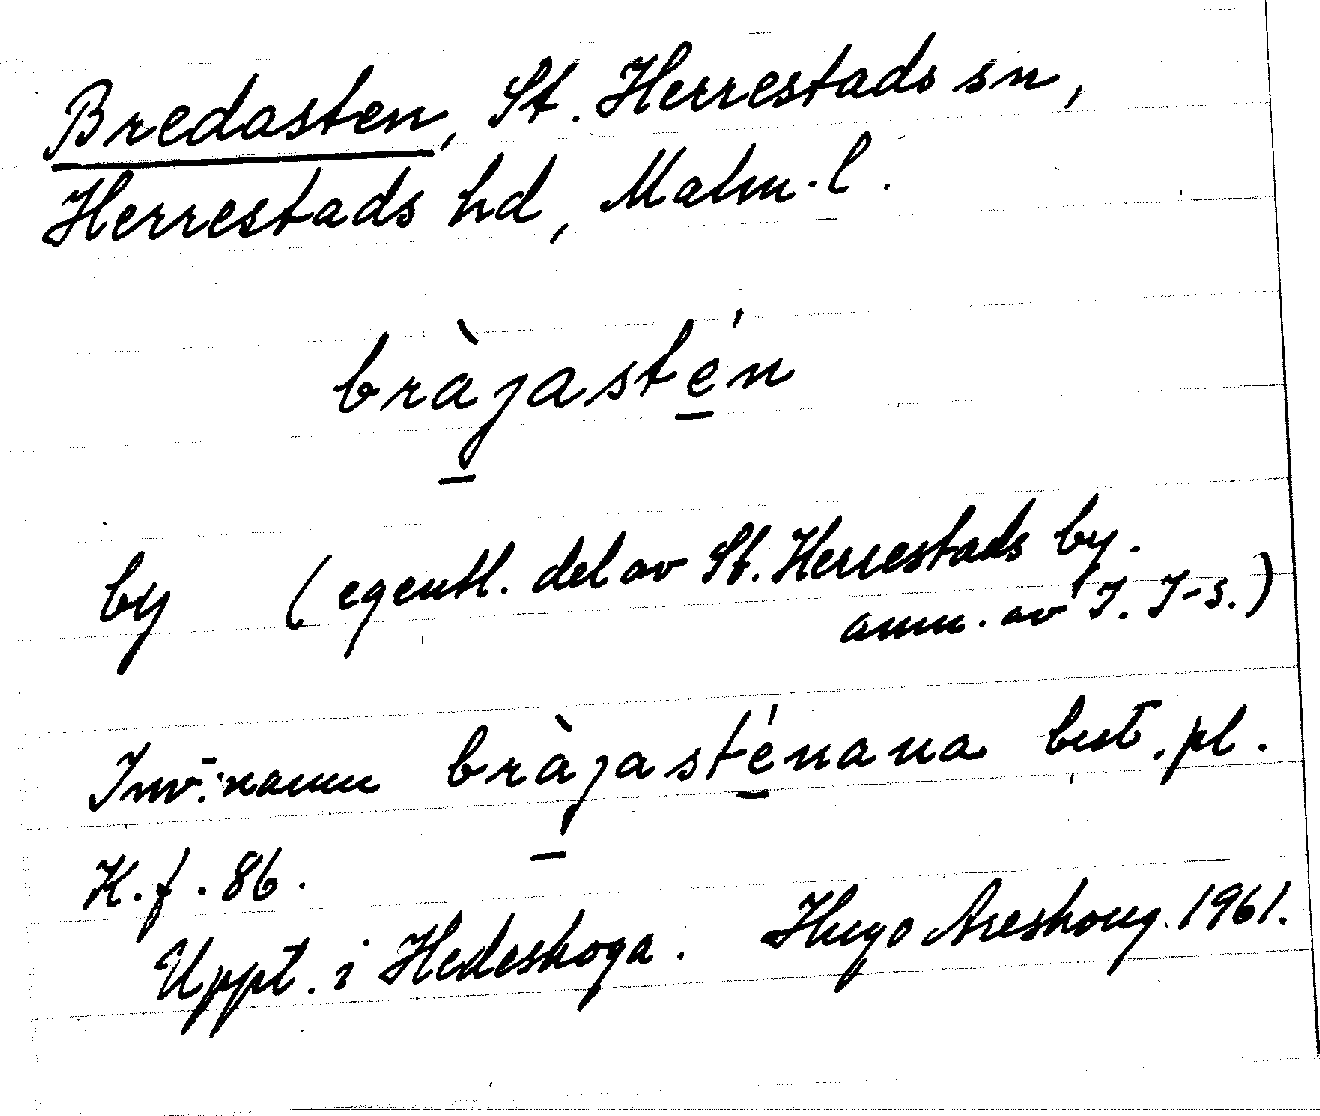 Bredasten, St. Herrestads sn,
Herrestads hd, Malm. l.
bràjastén
by (egentl. del av St. Herrestads by.
anm. av I. I-s.)
Inv. namn bràjasténana best. pl.
K. f. 86.
Uppt. i Hedeskoga. Hugo Areskoug. 1961.